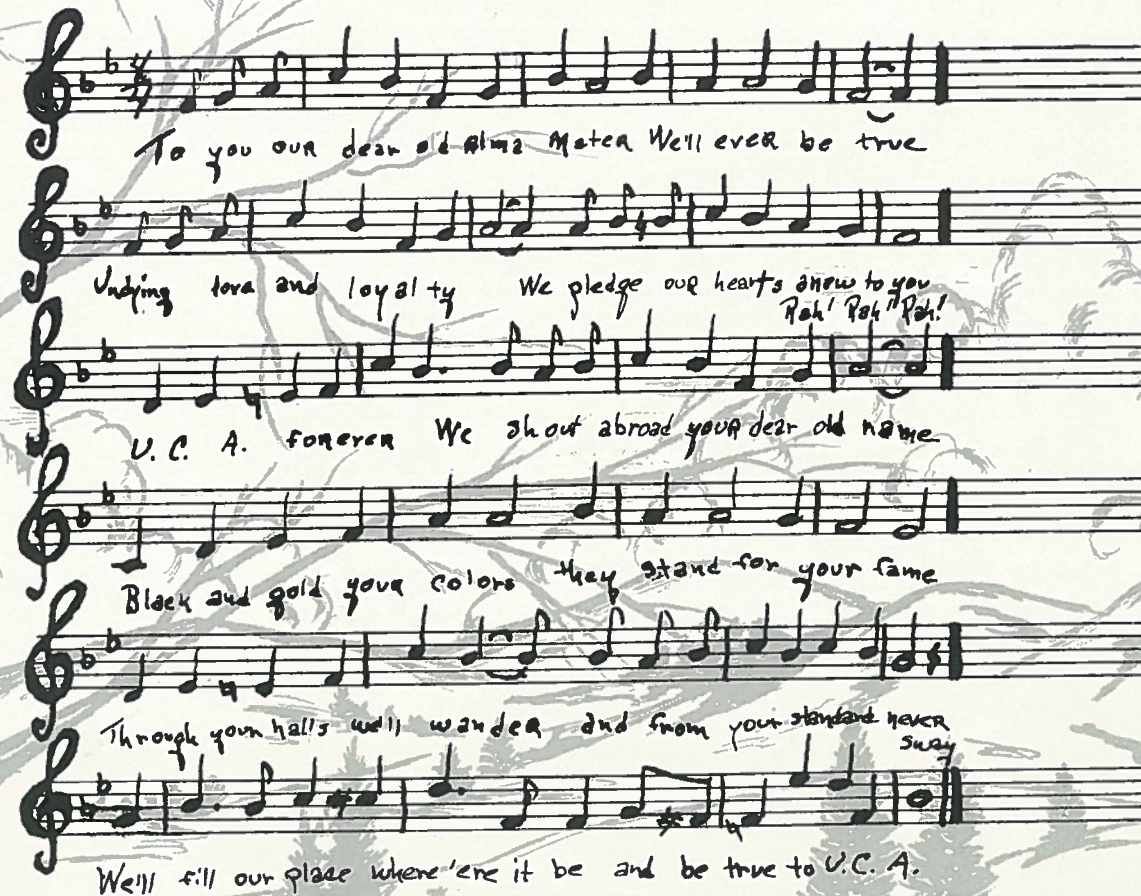 To you our dear old Alma Mater We'll ever be true
Undying love and loyalty We pledge our hearts anew to you
Rah! Rah! Rah!
U. C. A. forever We shout abroad your dear old name
Black and gold your colors they stand for your fame
Through your halls we'll wander and from your standard never
sway
We'll fill our place where 'ere it be and be true to U.C.A.